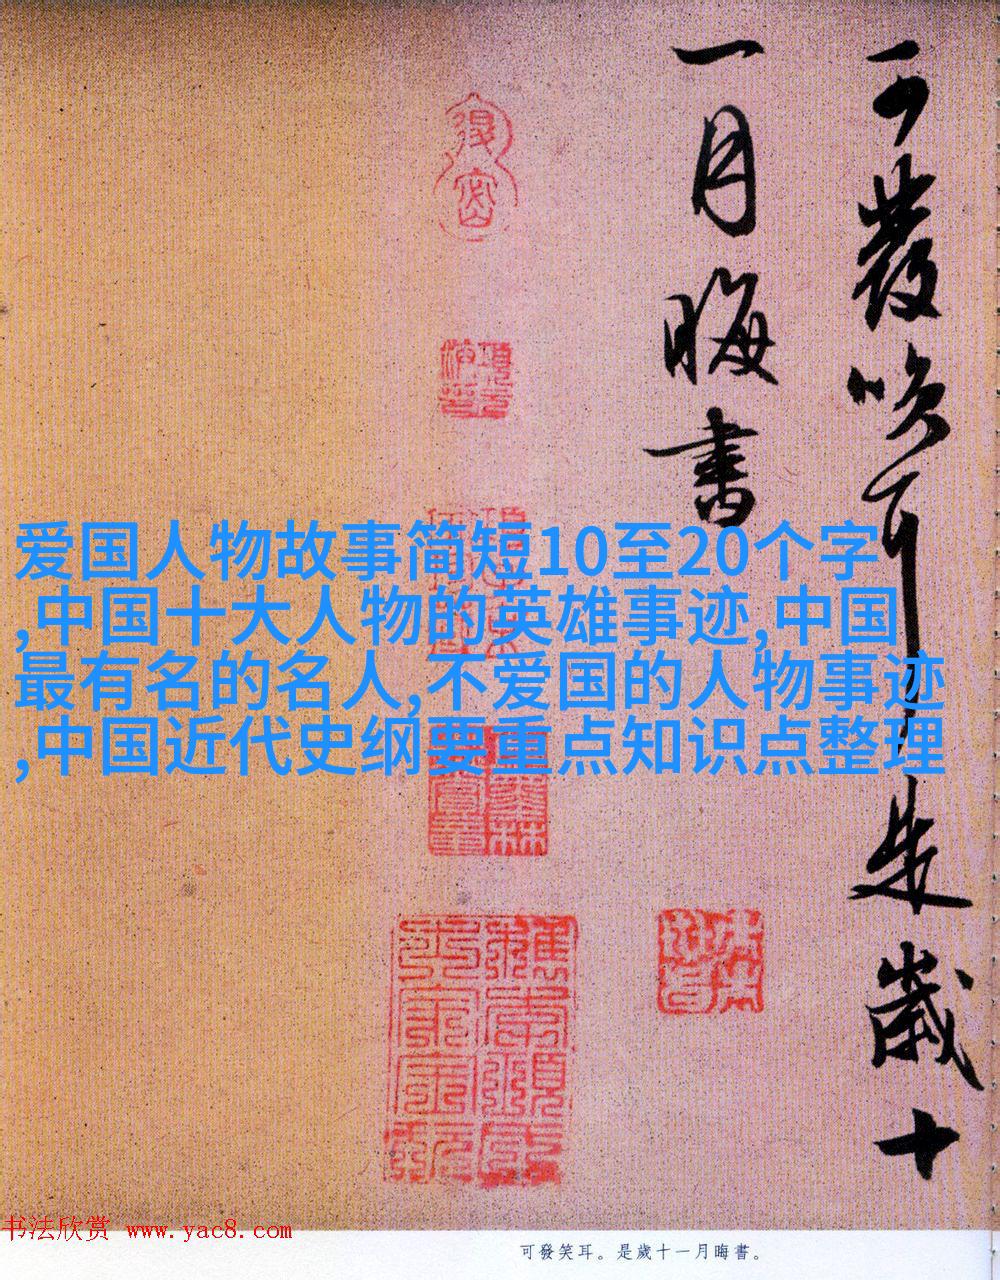 可發笑耳是歲十
一月晦書
爱国人物故事简短10至20个字
,中国十大人物的英雄事迹,中国
最有名的名人,不爱国的人物事迹
,中国近代史纲要重点知识点整理
书法欣赏 www.yac8.com
可發笑耳。是歲十一月晦書。